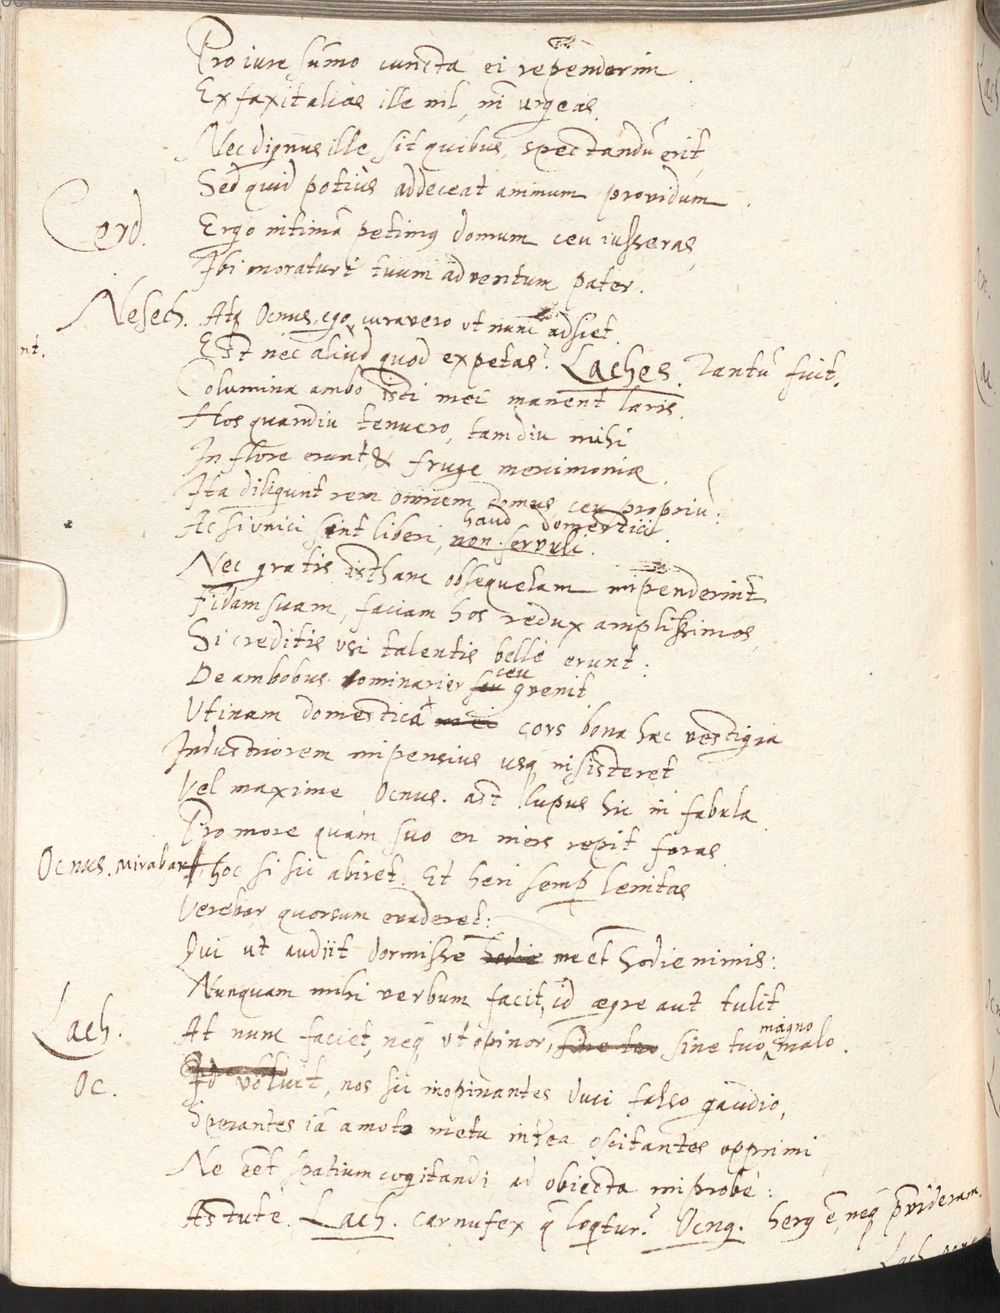 Pro iure sūmo cuncta ei rependerim
Ex faxit alias ille nil, nī urgeas,
Nec dignus ille sit quibus, spectandū erit,
Sed quid potius addeceat animum providum.
Cerd. Ergo intimā petimus domum ceu iusseras,
Ibi moraturi tuum adventum pater.
Nesech. Atq Ocnus, ego curavero ut nunc adsiet.
Est nec aliud quod expetas? Laches. Tantū fuit.
Columina ambo isti mei manent laris.
Hos quamdiu tenuero, tamdiu mihi
In flore erunt, & fruge mercimoniæ
Ita diligunt rem omnem domus ceu propriū.
Ac si unici sint liberi, haud domestici non servuli.
Nec gratis istham obsequelam impenderint
Fidam suam, faciam hos redux amplissimos,
Si creditis usi talentis belle erunt.
De ambobus nominarier seu ceu gvenit,
Utinam domestica mei cors bona hæc vestigia
Industriorem impensius usq insisteret
Vel maxime Ocnus. ast lupus hic in fabula
Pro more quam suo en iners repit foras.
Ocnus. Mirabar, hoc si sic abiret. Et heri semp lenitas
Verebar quorsum evaderet:
Qui ut audiit dormisse hodie meet hodie nimis:
Nunquam mihi verbum facit, id ægre aut tulit
Lach. At nunc faciet, neq ut opinor, sine tuo sine tuo magno malo.
Oc. Id voluit, nos sic inopinantes duci falso gaudio,
Sperantes iā amoto metu interea oscitantes opprimi
Ne eet spatium cogitandi ad obiecta improbe:
Astute. Lach. carnufex q loqtur? Ocnq. herq ē, neq p̄videram.